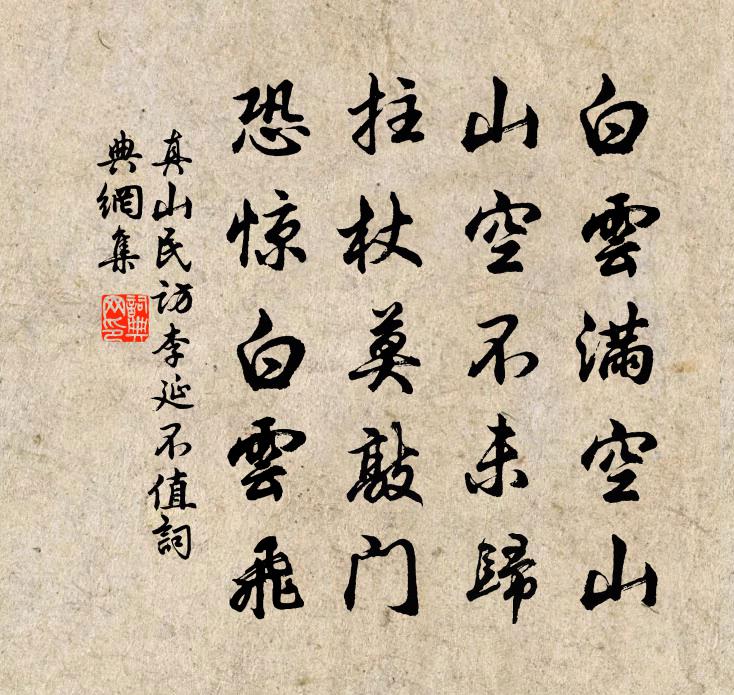 白雲滿空山
山空不未歸
拄杖莫敲門
恐惊白雲飛
真山民访李延不值詞
典網集
詞典
网印